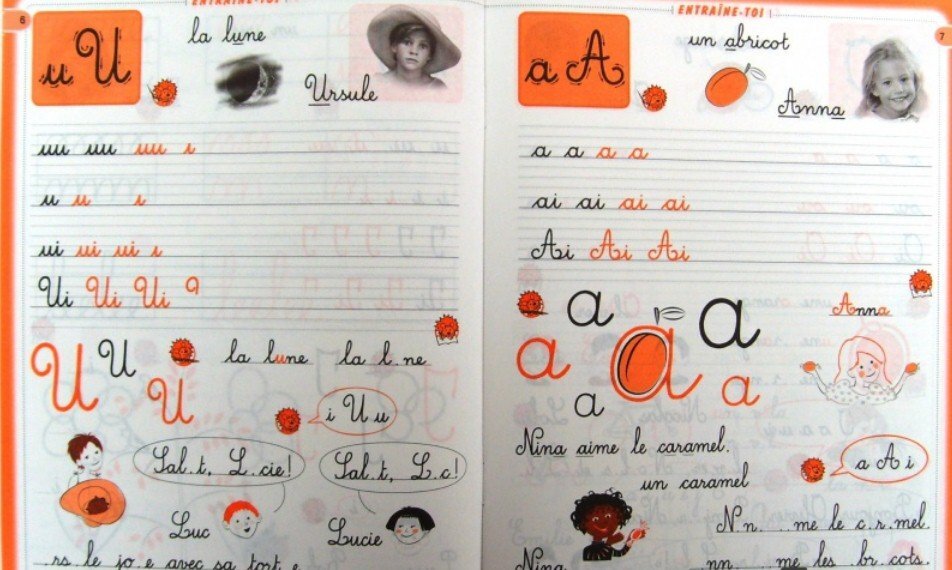 6
ENTRAÎNE-TOI
u U
la lune
Ursule
uu uu uu ı
u u ı
ui ui ui ı
Ui Ui Ui
U U U
la lune la l.ne
i U u
Sal.t, L.cie!
Sal.t, L.c!
Luc
Lucie
...rs.le jo.e avec sa tort.e
7
ENTRAÎNE-TOI
a A
un abricot
Anna
a a a a
ai ai ai ai
Ai Ai Ai
a a
Anna
a a a
a
Nina aime le caramel.
a A i
un caramel
N.n. ..me le c.r.mel.
Nina ...nn. ..me les .br.cots.